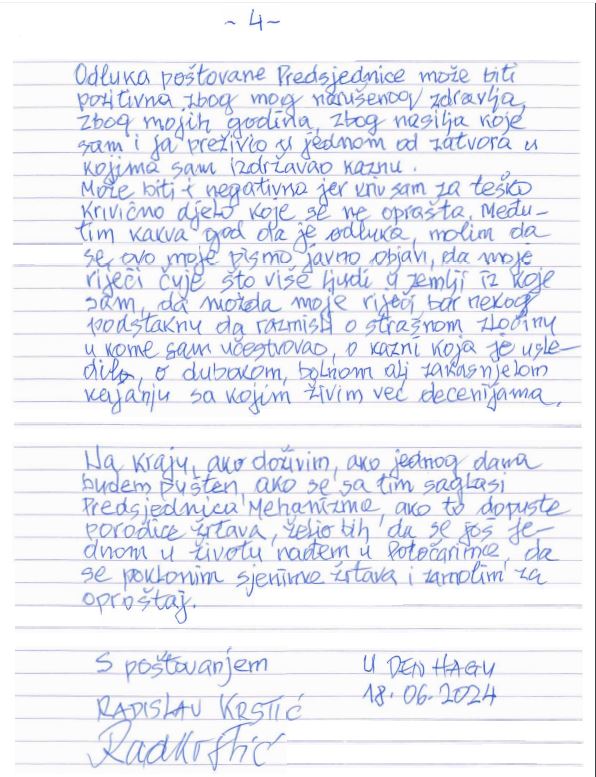 ~ 4 ~
Odluka poštovane Predsjednice može biti
pozitivna zbog mog narušenog zdravlja,
zbog mojih godina, zbog nasilja koje
sam i ja preživio u jednom od zatvora u
kojima sam izdržavao kaznu.
Može biti i negativna jer kriv sam za teško
krivično djelo koje se ne oprašta. Među-
tim kakva god da je odluka, molim da
se ovo moje pismo javno objavi, da moje
riječi čuje što više ljudi u zemlji iz koje
sam, da možda moje riječi bar nekog
podstaknu da razmisli o strašnom zločinu
u kome sam učestvovao, o kazni koja je usle-
dila, o dubokom, bolnom ali zakasnjelom
kajanju sa kojim živim već decenijama.
Na kraju, ako doživim, ako jednog dana
budem pušten, ako se sa tim saglasi
Predsjednica Mehanizma, ako to dopuste
porodice žrtava, želio bih da se još je-
dnom u životu nađem u Potočarima, da
se poklonim sjenima žrtava i zamolim za
oproštaj.
S poštovanjem
U DEN HAGU
18.06.2024
RADISLAV KRSTIĆ
RadKrstić